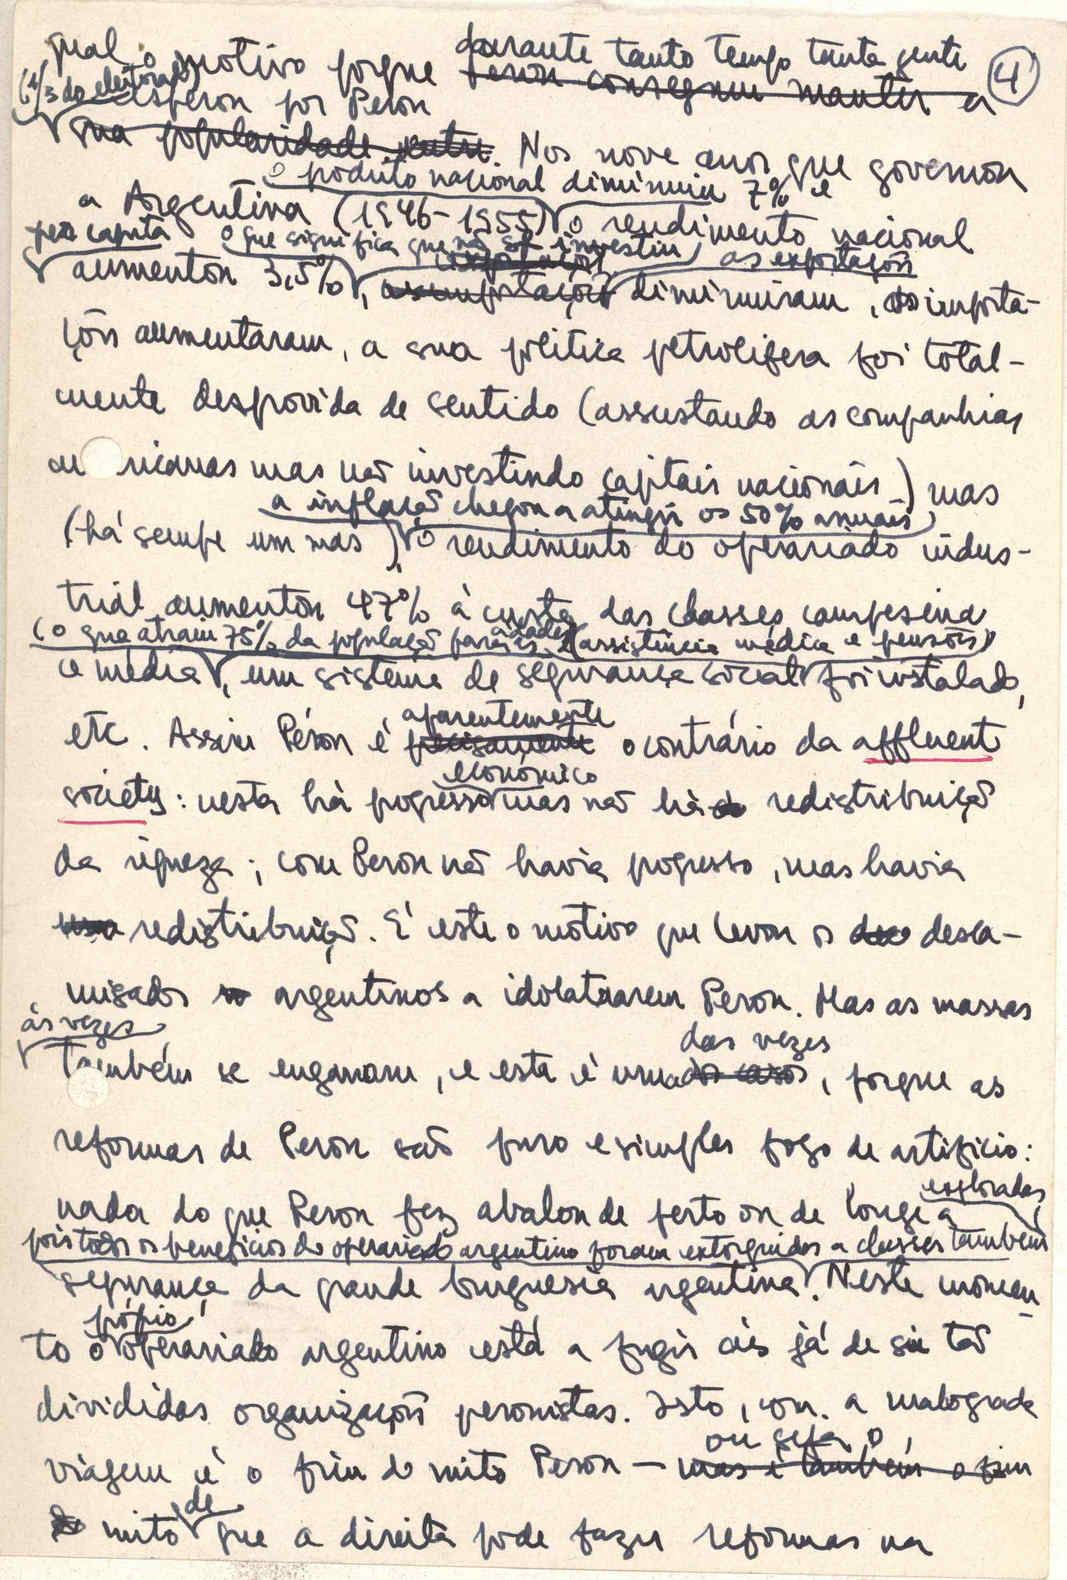 qual o motivo porque durante tanto tempo tanta gente
4
Peron conseguiu manter a
(2/3 do eleitorado) esperou por Peron
sua popularidade, entre. Nos nove anos que governou
o produto nacional diminuiu 7% e
a Argentina (1946-1955) o rendimento nacional
per capita o que significa que não se investiu as exportações
aumentou 3,5%, diminuiram, as importa-
ções aumentaram, a sua politica petrolifera foi total-
mente desprovida de sentido (assustando as companhias
americanas mas não investindo capitais nacionais) mas
a inflação chegou a atingir os 50% anuais
(há sempre um mas) o rendimento do operariado indus-
trial aumentou 47% à custa das classes campesina
(o que atraiu 75% da população para as cidades) (assistência médica e pensões)
e média, um sistema de segurança social foi instalado,
aparentemente
etc. Assim Péron é precisamente o contrário da affluent
económico
society: nesta há progresso mas não há redistribuição
da riqueza; com Peron não havia progresso, mas havia
uma redistribuição. É este o motivo que levou os desca-
misados argentinos a idolatrarem Peron. Mas as massas
às vezes das vezes
também se enganam, e esta é uma dos casos, porque as
reformas de Peron são puro e simples fogo de artificio:
exploradas
nada do que Peron fez abalou de perto ou de longe a
pois todos os beneficios do operariado argentino foram extorquidos a classes também
segurança da grande burguesia argentina. Neste momen-
próprio
to o operariado argentino está a fugir às já de si tão
divididas organizações peronistas. Isto, com a malograda
ou seja, o
viagem é o fim do mito Peron — mas é também o fim
de
do mito que a direita pode fazer reformas na